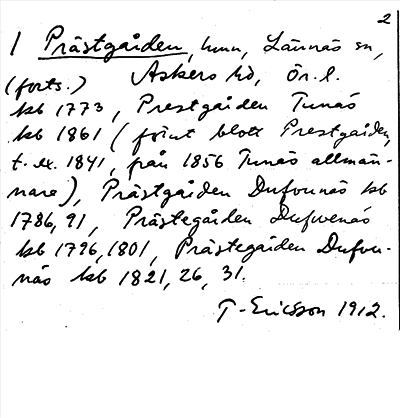 2
1 Prästgården, hmn, Lännäs sn,
(forts.) Askers hd, Ör. l.
kb 1773, Prestgården Tunäs
kb 1861 (förut blott Prestgården,
t. ex. 1841, från 1856 Tunäs allmän-
nare), Prästgården Dufvunäs kb
1786, 91, Prästegården Dufvenäs
kb 1796, 1801, Prästegården Dufvu-
näs kb 1821, 26, 31.
T. Ericsson 1912.